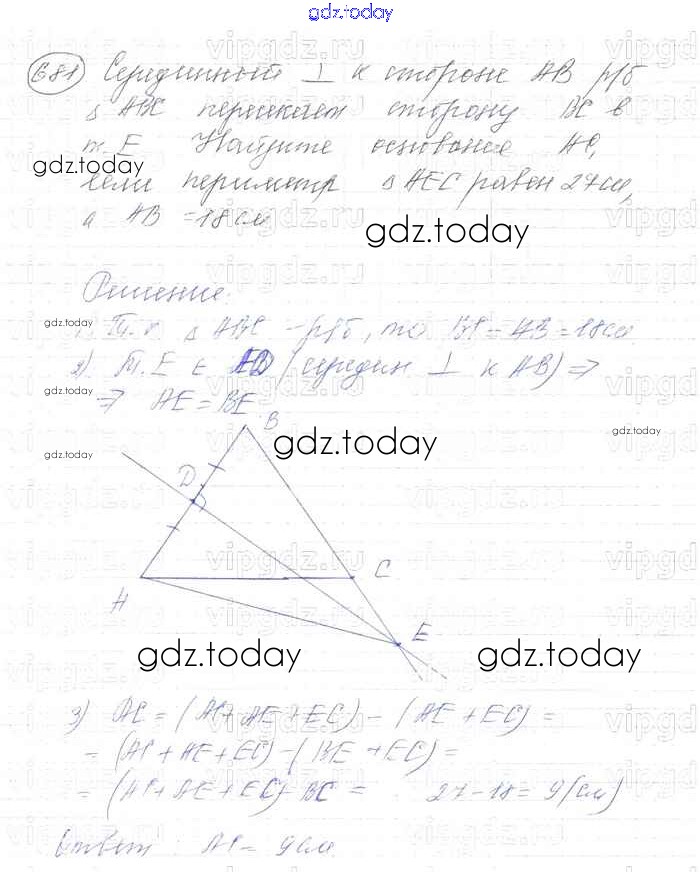 gdz.today
681 Серединный ⊥ к стороне AB р/б
Δ ABC пересекает сторону BC в
т. E. Найдите основание AC,
gdz.today
если периметр Δ AEC равен 27 см,
а AB = 18 см
gdz.today
Решение:
gdz.today
1) Т. к. Δ ABC - р/б, то BC = AB = 18 см.
2) Т. E ∈ ED (середин ⊥ к AB) ⇒
gdz.today
⇒ AE = BE
B
gdz.today
gdz.today
gdz.today
D
C
A
E
gdz.today
gdz.today
3) AC = (AC + AE + EC) - (AE + EC) =
= (AC + AE + EC) - (BE + EC) =
= (AC + AE + EC) - BC = 27 - 18 = 9 (см)
Ответ: AC = 9 см.